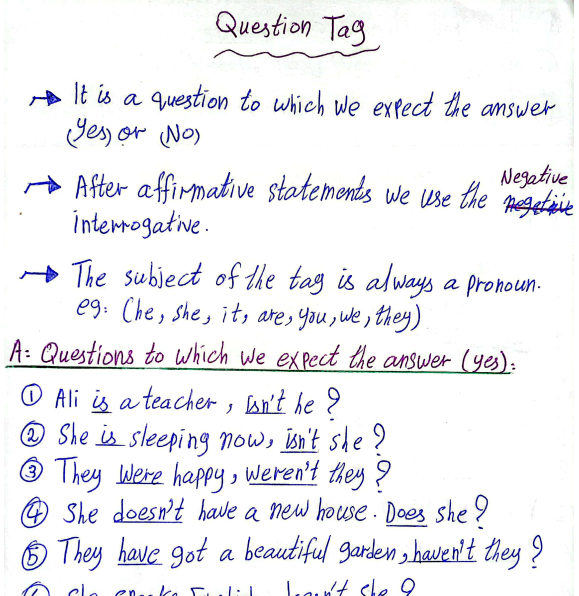 Question Tag
It is a question to which we expect the answer
(Yes) or (No)
After affirmative statements we use the Negative
interrogative.
The subject of the tag is always a pronoun.
eg: (he, she, it, are, you, we, they)
A: Questions to which we expect the answer (yes):
① Ali is a teacher, Isn't he?
② She is sleeping now, isn't she?
③ They were happy, weren't they?
④ She doesn't have a new house. Does she?
⑤ They have got a beautiful garden, haven't they?
she?